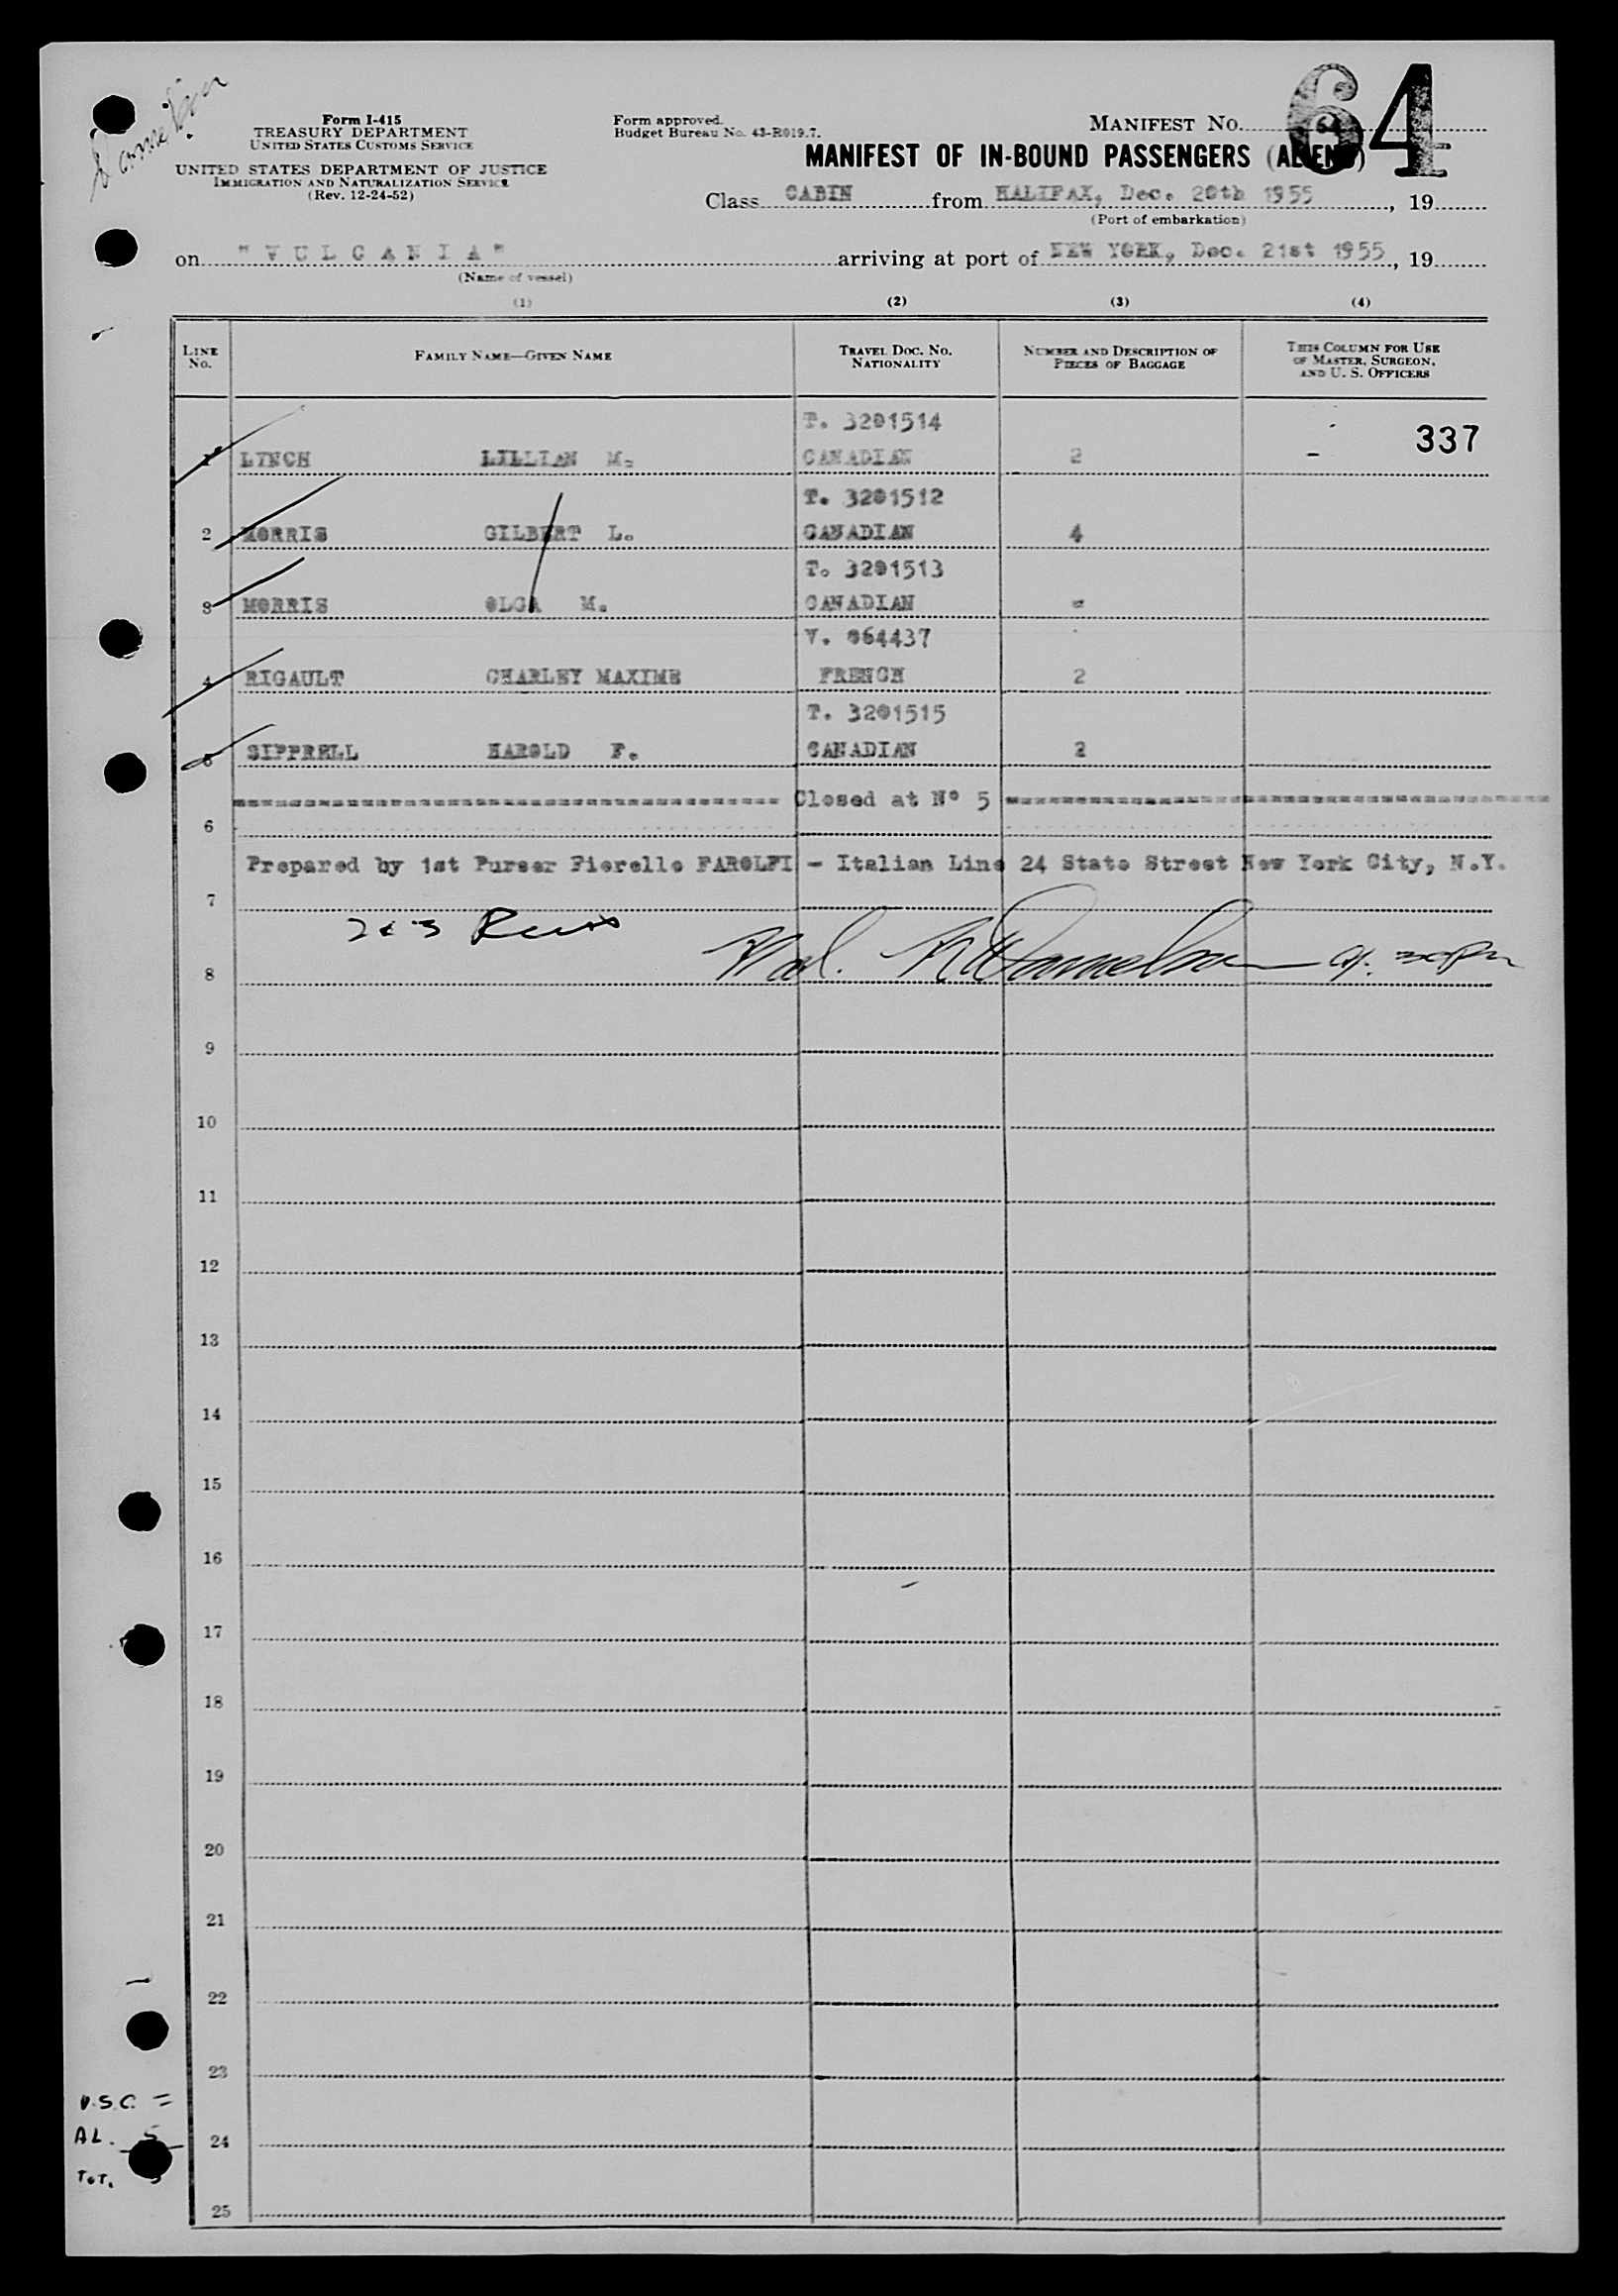 Form I-415
TREASURY DEPARTMENT
UNITED STATES CUSTOMS SERVICE
UNITED STATES DEPARTMENT OF JUSTICE
IMMIGRATION AND NATURALIZATION SERVICE
(Rev. 12-24-52)
Form approved.
Budget Bureau No. 43-R019.7.
MANIFEST NO. 64
64
MANIFEST OF IN-BOUND PASSENGERS (ALIENS)
Class CABIN from HALIFAX, Dec. 20th 1955, 19
(Port of embarkation)
on "VULCANIA" arriving at port of NEW YORK, Dec. 21st 1955, 19
(Name of vessel)
(1) (2) (3) (4)
LINE No. FAMILY NAME—GIVEN NAME TRAVEL DOC. NO. NATIONALITY NUMBER AND DESCRIPTION OF PIECES OF BAGGAGE THIS COLUMN FOR USE OF MASTER, SURGEON, AND U. S. OFFICERS
T. 3201514 337
1 LYNCH LILLIAN M. CANADIAN 2 -
T. 3201512
2 MORRIS GILBERT L. CANADIAN 4
T. 3201513
3 MORRIS OLGA M. CANADIAN -
V. 064437
4 RIGAULT CHARLEY MAXIME FRENCH 2
T. 3201515
5 SIPPRELL HAROLD F. CANADIAN 2
Closed at Nº 5
6
Prepared by 1st Purser Fiorello FAROLFI - Italian Line 24 State Street New York City, N.Y.
7
2 & 3
8
9
10
11
12
13
14
15
16
17
18
19
20
21
22
23
U.S.C. =
AL. 5
24
TOT. 5
25